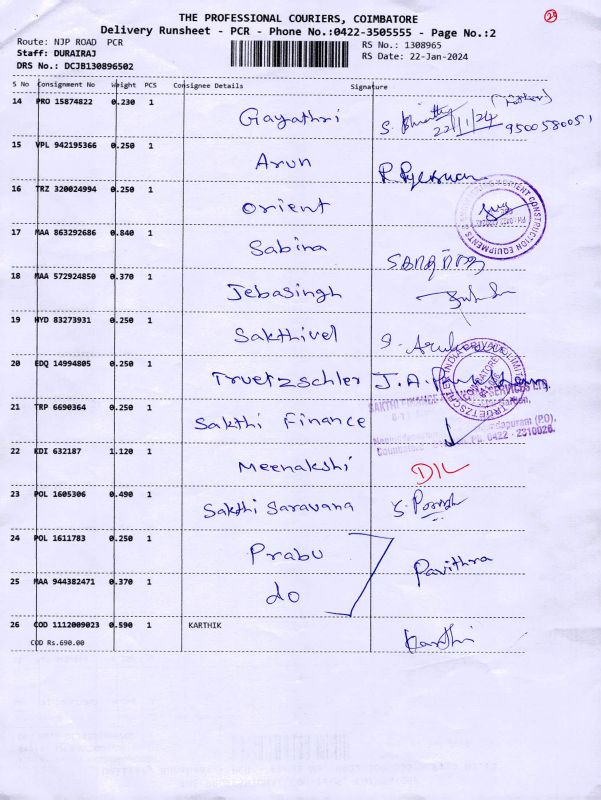 THE PROFESSIONAL COURIERS, COIMBATORE
Delivery Runsheet - PCR - Phone No.:0422-3505555 - Page No.:2
Route: NJP ROAD PCR
RS No.: 1308965
Staff: DURAIRAJ
RS Date: 22-Jan-2024
DRS No.: DCJB130896502
S No Consignment No Weight PCS Consignee Details Signature
14 PRO 15874822 0.230 1 Gayathri S. 22/1/24 9500580051
15 VPL 942195366 0.250 1 Arun
16 TRZ 320024994 0.250 1 Orient
CONSTRUCTION EQUIPMENTS
17 MAA 863292686 0.840 1 Sabina
18 MAA 572924850 0.370 1 Jebasingh
19 HYD 83273931 0.250 1 Sakthivel
20 EDQ 14994805 0.250 1 Truetzschler J.A.
COIMBATORE
SAKTHI FINANCE SERVICES LTD.
21 TRP 6690364 0.250 1 Sakthi Finance
Coimbatore Ph. 0422 - 2310026.
22 KDI 632187 1.120 1 Meenakshi D/L
23 POL 1605306 0.490 1 Sakthi Saravana
24 POL 1611783 0.250 1 Prabu Pavithra
25 MAA 944382471 0.370 1 do
26 COD 1112009023 0.590 1 KARTHIK Karthi
COD Rs.690.00